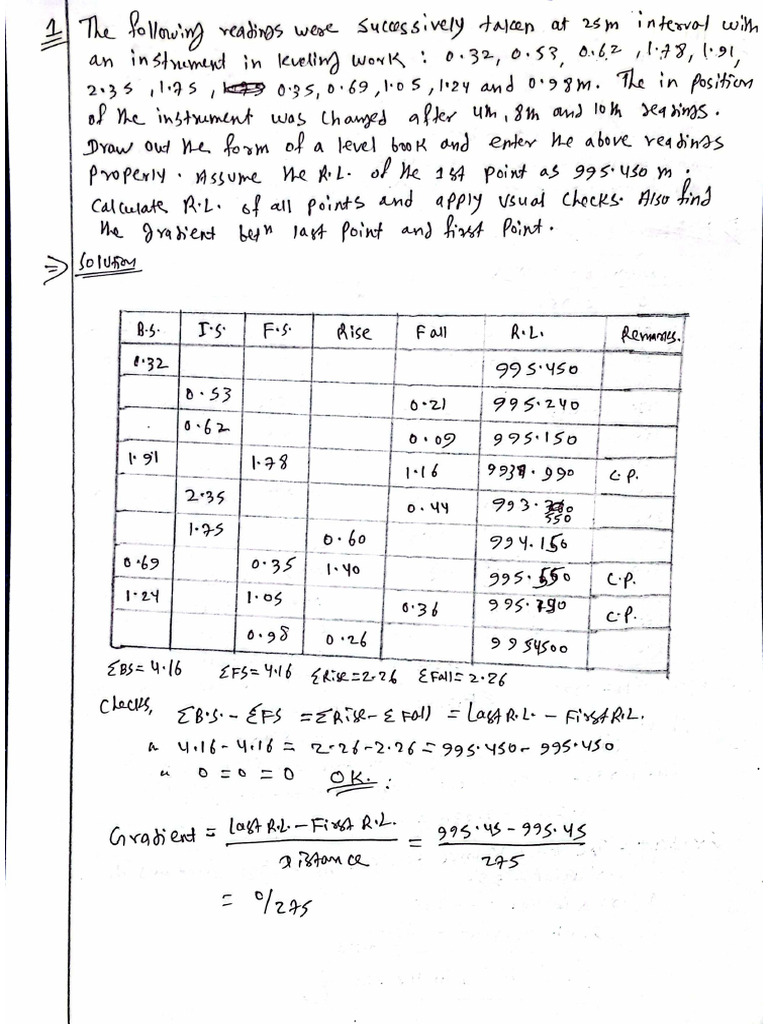 1 The following readings were successively taken at 25m interval with
an instrument in leveling work : 0.32, 0.53, 0.62, 1.78, 1.91,
2.35, 1.75, 0.35, 0.69, 1.05, 1.24 and 0.98m. The in position
of the instrument was changed after 4th, 8th and 10th readings.
Draw out the form of a level book and enter the above readings
properly. Assume the R.L. of the 1st point as 995.450 m.
Calculate R.L. of all points and apply usual checks. Also find
the gradient betn last point and first point.
⇒ Solution
B.S. I.S. F.S. Rise Fall R.L. Remarks.
0.32 995.450
0.53 0.21 995.240
0.62 0.09 995.150
1.91 1.78 1.16 993.990 C.P.
2.35 0.44 993.550
1.75 0.60 994.150
0.69 0.35 1.40 995.550 C.P.
1.24 1.05 0.36 995.190 C.P.
0.98 0.26 9954500
ΣBS = 4.16 ΣFS = 4.16 ΣRise = 2.26 ΣFall = 2.26
Checks, ΣB.S. - ΣFS = ΣRise - ΣFall = Last R.L. - First R.L.
4.16 - 4.16 = 2.26 - 2.26 = 995.450 - 995.450
0 = 0 = 0 OK.
Gradient = Last R.L. - First R.L. / Distance = 995.45 - 995.45 / 275
= 0/275